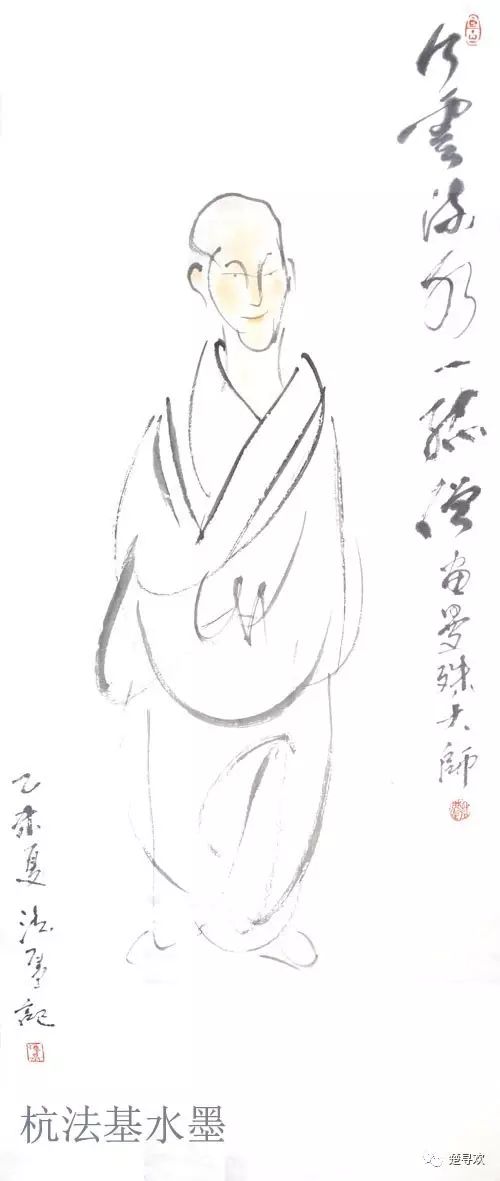 行雲流水一孤僧 画曼殊大師
乙亥夏 法基記
杭法基水墨
楚寻欢